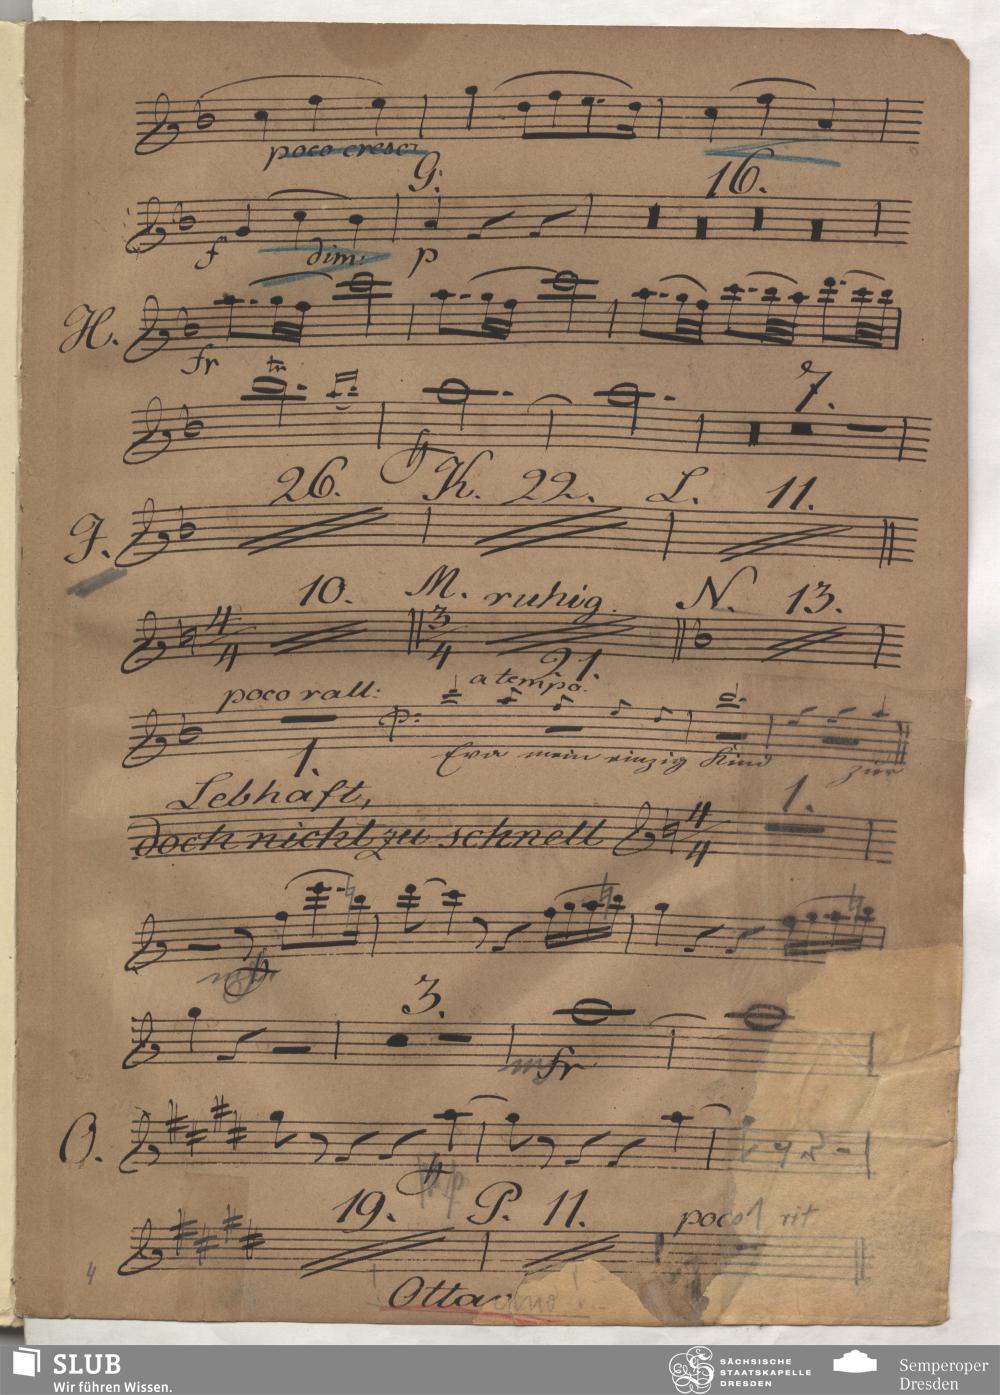 poco cresc:
G. 16.
f dim: p
H.
fr
tr 7.
26. K. 22. L. 11.
J.
10. M. ruhig. N. 13.
4 4 3 4 21.
poco rall: a tempo.
1. Eva mein einzig Kind zur
Lebhaft, 1.
doch nicht zu schnell 4 4
3.
mfr
O.
19. P. 11. poco rit
4
Otta
SLUB
Wir führen Wissen.
SÄCHSISCHE
STAATSKAPELLE
DRESDEN
Semperoper
Dresden